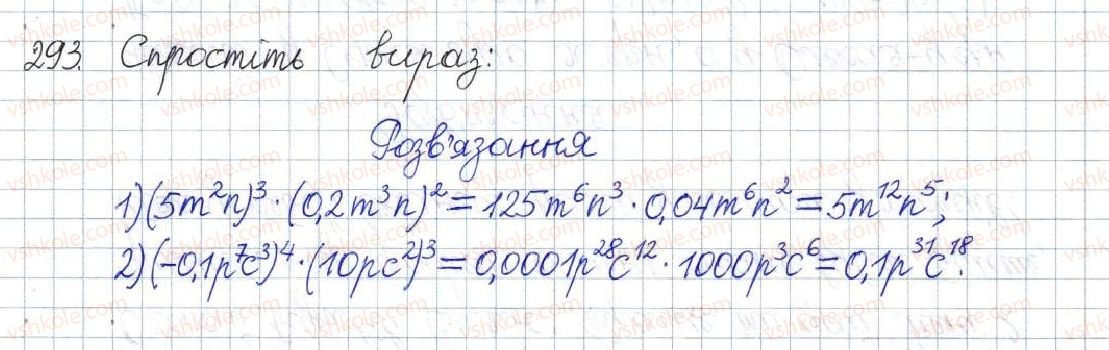 293. Спростіть вираз:
Розв'язання
1) (5m²n)³ · (0,2m³n)² = 125m⁶n³ · 0,04m⁶n² = 5m¹²n⁵;
2) (-0,1p⁷c³)⁴ · (10pc²)³ = 0,0001p²⁸c¹² · 1000p³c⁶ = 0,1p³¹c¹⁸.